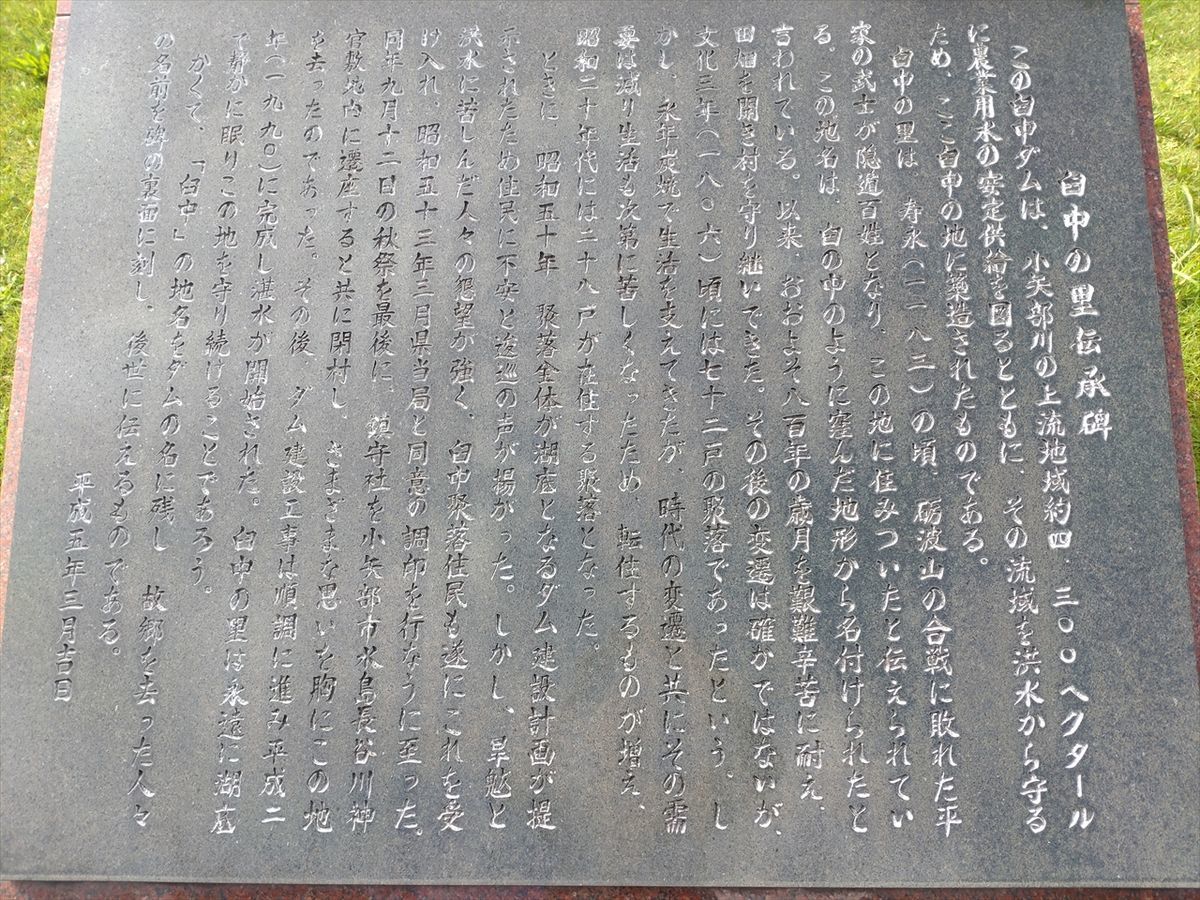 臼中の里伝承碑
この臼中ダムは、小矢部川の上流地域約四、三〇〇ヘクタール
に農業用水の安定供給を図るとともに、その流域を洪水から守る
ため、ここ臼中の地に築造されたものである。
臼中の里は、寿永(一一八三)の頃、砺波山の合戦に敗れた平
家の武士が隠遁百姓となり、この地に住みついたと伝えられてい
る。この地名は、臼の中のように窪んだ地形から名付けられたと
言われている。以来、おおよそ八百年の歳月を艱難辛苦に耐え、
田畑を開き村を守り継いできた。その後の変遷は確かではないが、
文化三年(一八〇六)頃には七十二戸の聚落であったという。し
かし、永年炭焼で生活を支えてきたが、時代の変遷と共にその需
要は減り生活も次第に苦しくなったため、転住するものが増え、
昭和二十年代には二十八戸が在住する聚落となった。
ときに 昭和五十年 聚落全体が湖底となるダム建設計画が提
示されたため住民に不安と逡巡の声が揚がった。しかし、旱魃と
洪水に苦しんだ人々の怨望が強く、臼中聚落住民も遂にこれを受
け入れ、昭和五十三年三月県当局と同意の調印を行なうに至った。
同年九月十二日の秋祭を最後に、鎮守社を小矢部市水島長谷川神
官敷地内に遷座すると共に閉村し、さまざまな思いを胸にこの地
を去ったのであった。その後 ダム建設工事は順調に進み平成二
年(一九九〇)に完成し湛水が開始された。臼中の里は永遠に湖底
で静かに眠りこの地を守り続けることであろう。
かくて、「臼中」の地名をダムの名に残し 故郷を去った人々
の名前を碑の裏面に刻し、後世に伝えるものである。
平成五年三月吉日